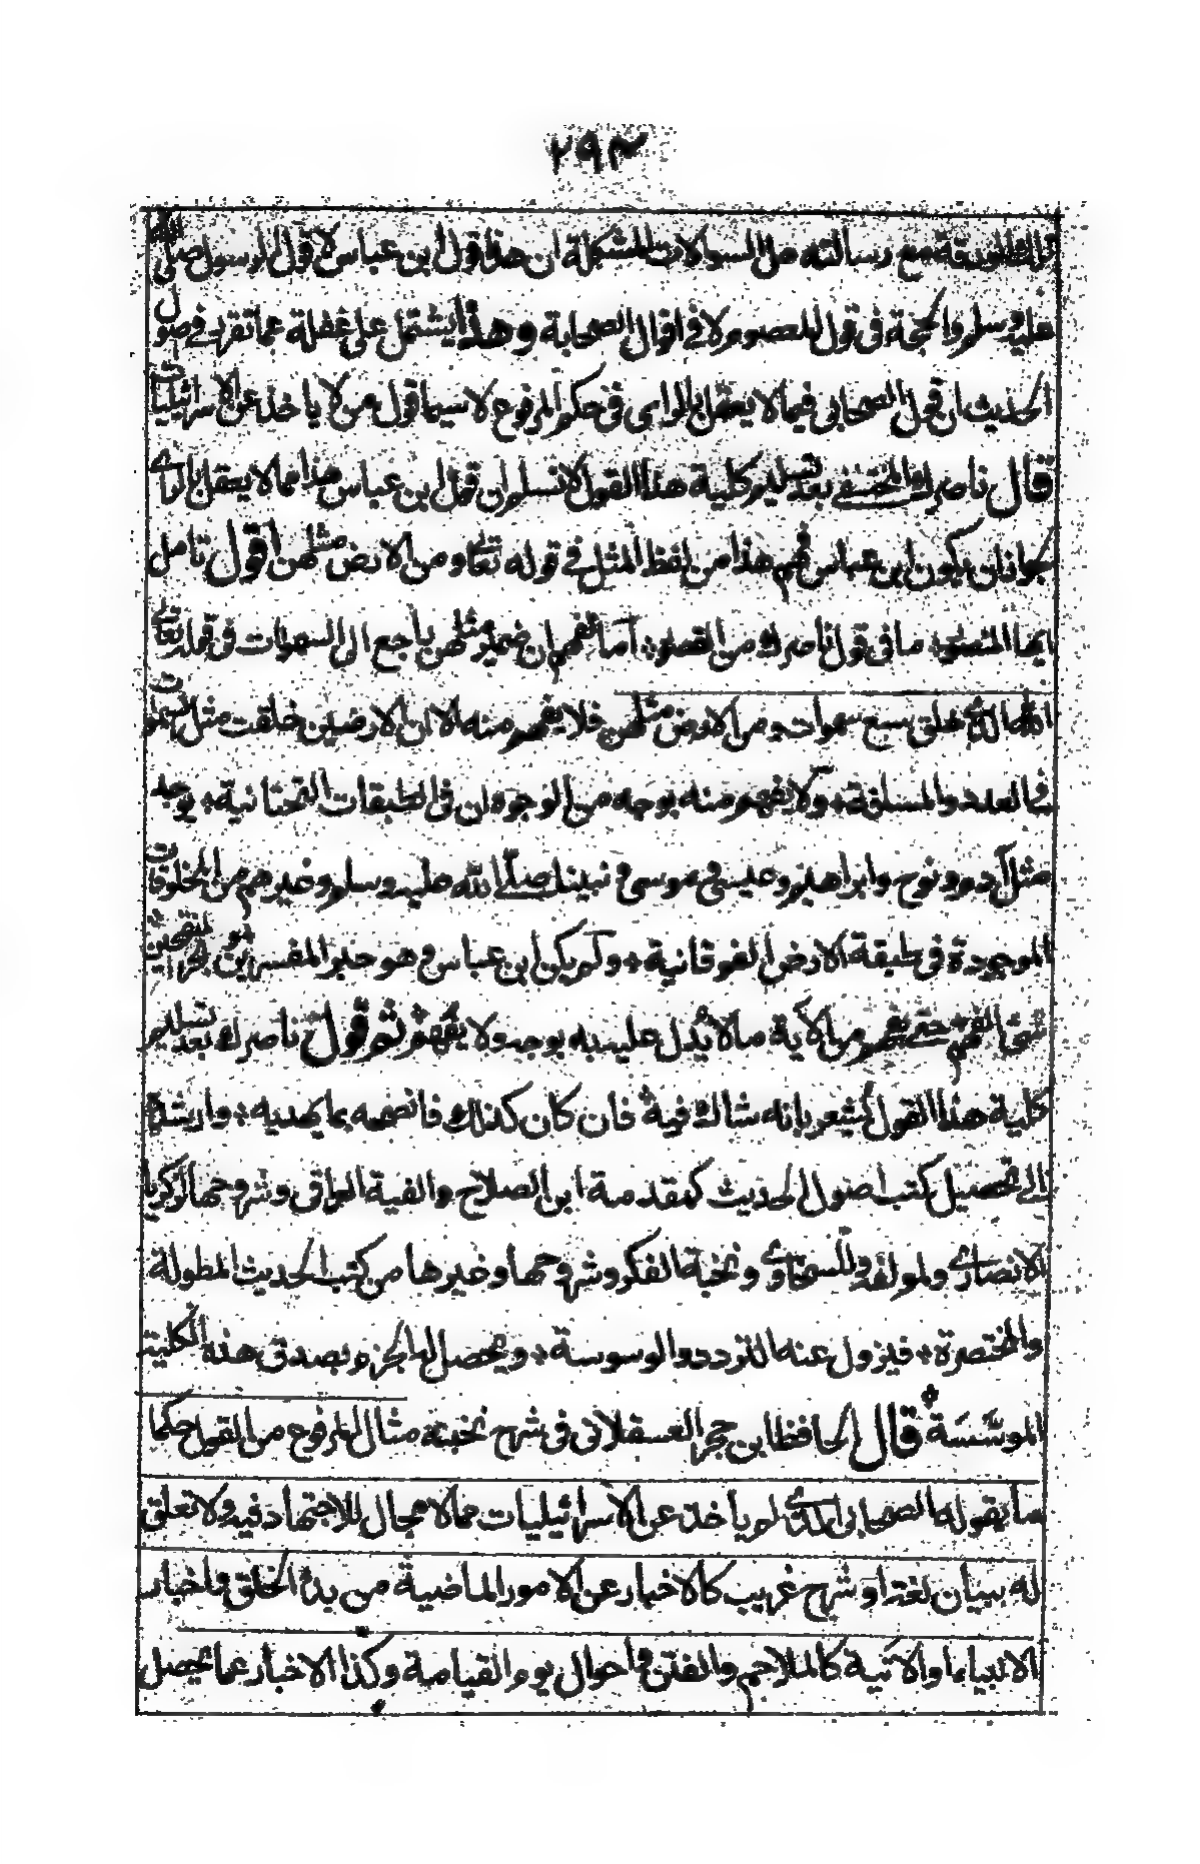 ٢٩٣
مع رسالته حل السوالات المشكلة ان هذا قول ابن عباس لا قول الرسول صلى الله
عليه وسلم والحجة فى قول المعصوم لا فى اقوال الصحابة وهذا يشتمل على غفلة عما تقرر فى اصول
الحديث ان قول الصحابى فيما لا يعقل بالراى فى حكم المرفوع لا سيما قول من لا ياخذ عن الاسرائيليات
قال ناصرك المختفے بعد تسليم كلية هذا القول لا نسلم ان قول ابن عباس هذا مما لا يعقل بالراے
لجواز ان يكون ابن عباس فهم هذا من لفظ المثل فے قوله تعالے ومن الارض مثلهن اقول تامل
ايها المنصور ما فى قول ناصرك من القصور اما تفهم ان ضمير مثلهن راجع الى السموات فى قوله تعالے
الله الذى خلق سبع سموات ومن الارض مثلهن فلا يفهم منه الا ان الارضين خلقت مثل السموات
فى العدد والمسافة ولا يفهم منه بوجه من الوجوه ان فى الطبقات التحتانية يوجد
مثل آدم ونوح وابراهيم وعيسى وموسى ونبينا صلے الله عليه وسلم وغيرهم من المخلوقات
الموجودة فى طبقة الارض الفوقانية ولم يكن ابن عباس وهو حبر المفسرين وبحر المتقين
سخيف الفهم حتے يفهم من الآية ما لا يدل عليه بوجه ولا يفهم ثم قول ناصرك بعد تسليم
كلية هذا القول يشعر بانه شاك فيه فان كان كذلك فانصحه بما يهديه وارشده
الے تحصيل كتب اصول الحديث كمقدمة ابن الصلاح والفية العراقى وشروحها لزكريا
الانصارى ولمولفه وللسخاوے ونخبة الفكر وشروحها وغيرها من كتب الحديث المطولة
والمختصرة فيزول عنه التردد والوسوسة ويحصل له الجزم بصدق هذه الكلية
الموسسة قال الحافظ ابن حجر العسقلانى فى شرح نخبته مثال المرفوع من القول حكما
ما يقوله الصحابى الذے لم ياخذ عن الاسرائيليات مما لا مجال للاجتهاد فيه ولا تعلق
له ببيان لغة او شرح غريب كالاخبار عن الامور الماضية من بدأ الخلق واخبار
الانبياء او الآتية كالملاحم والفتن واحوال يوم القيامة وكذا الاخبار عما يحصل